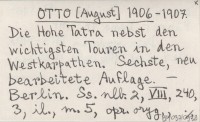 OTTO [August] 1906-1907.
Die Hohe Tatra nebst den
wichtigsten Touren in den
Westkarpathen. Sechste, neu
bearbeitete Auflage. —
Berlin. Ss. nlb. 2, VIII, 240,
3, il., m. 5, opr. oryg.